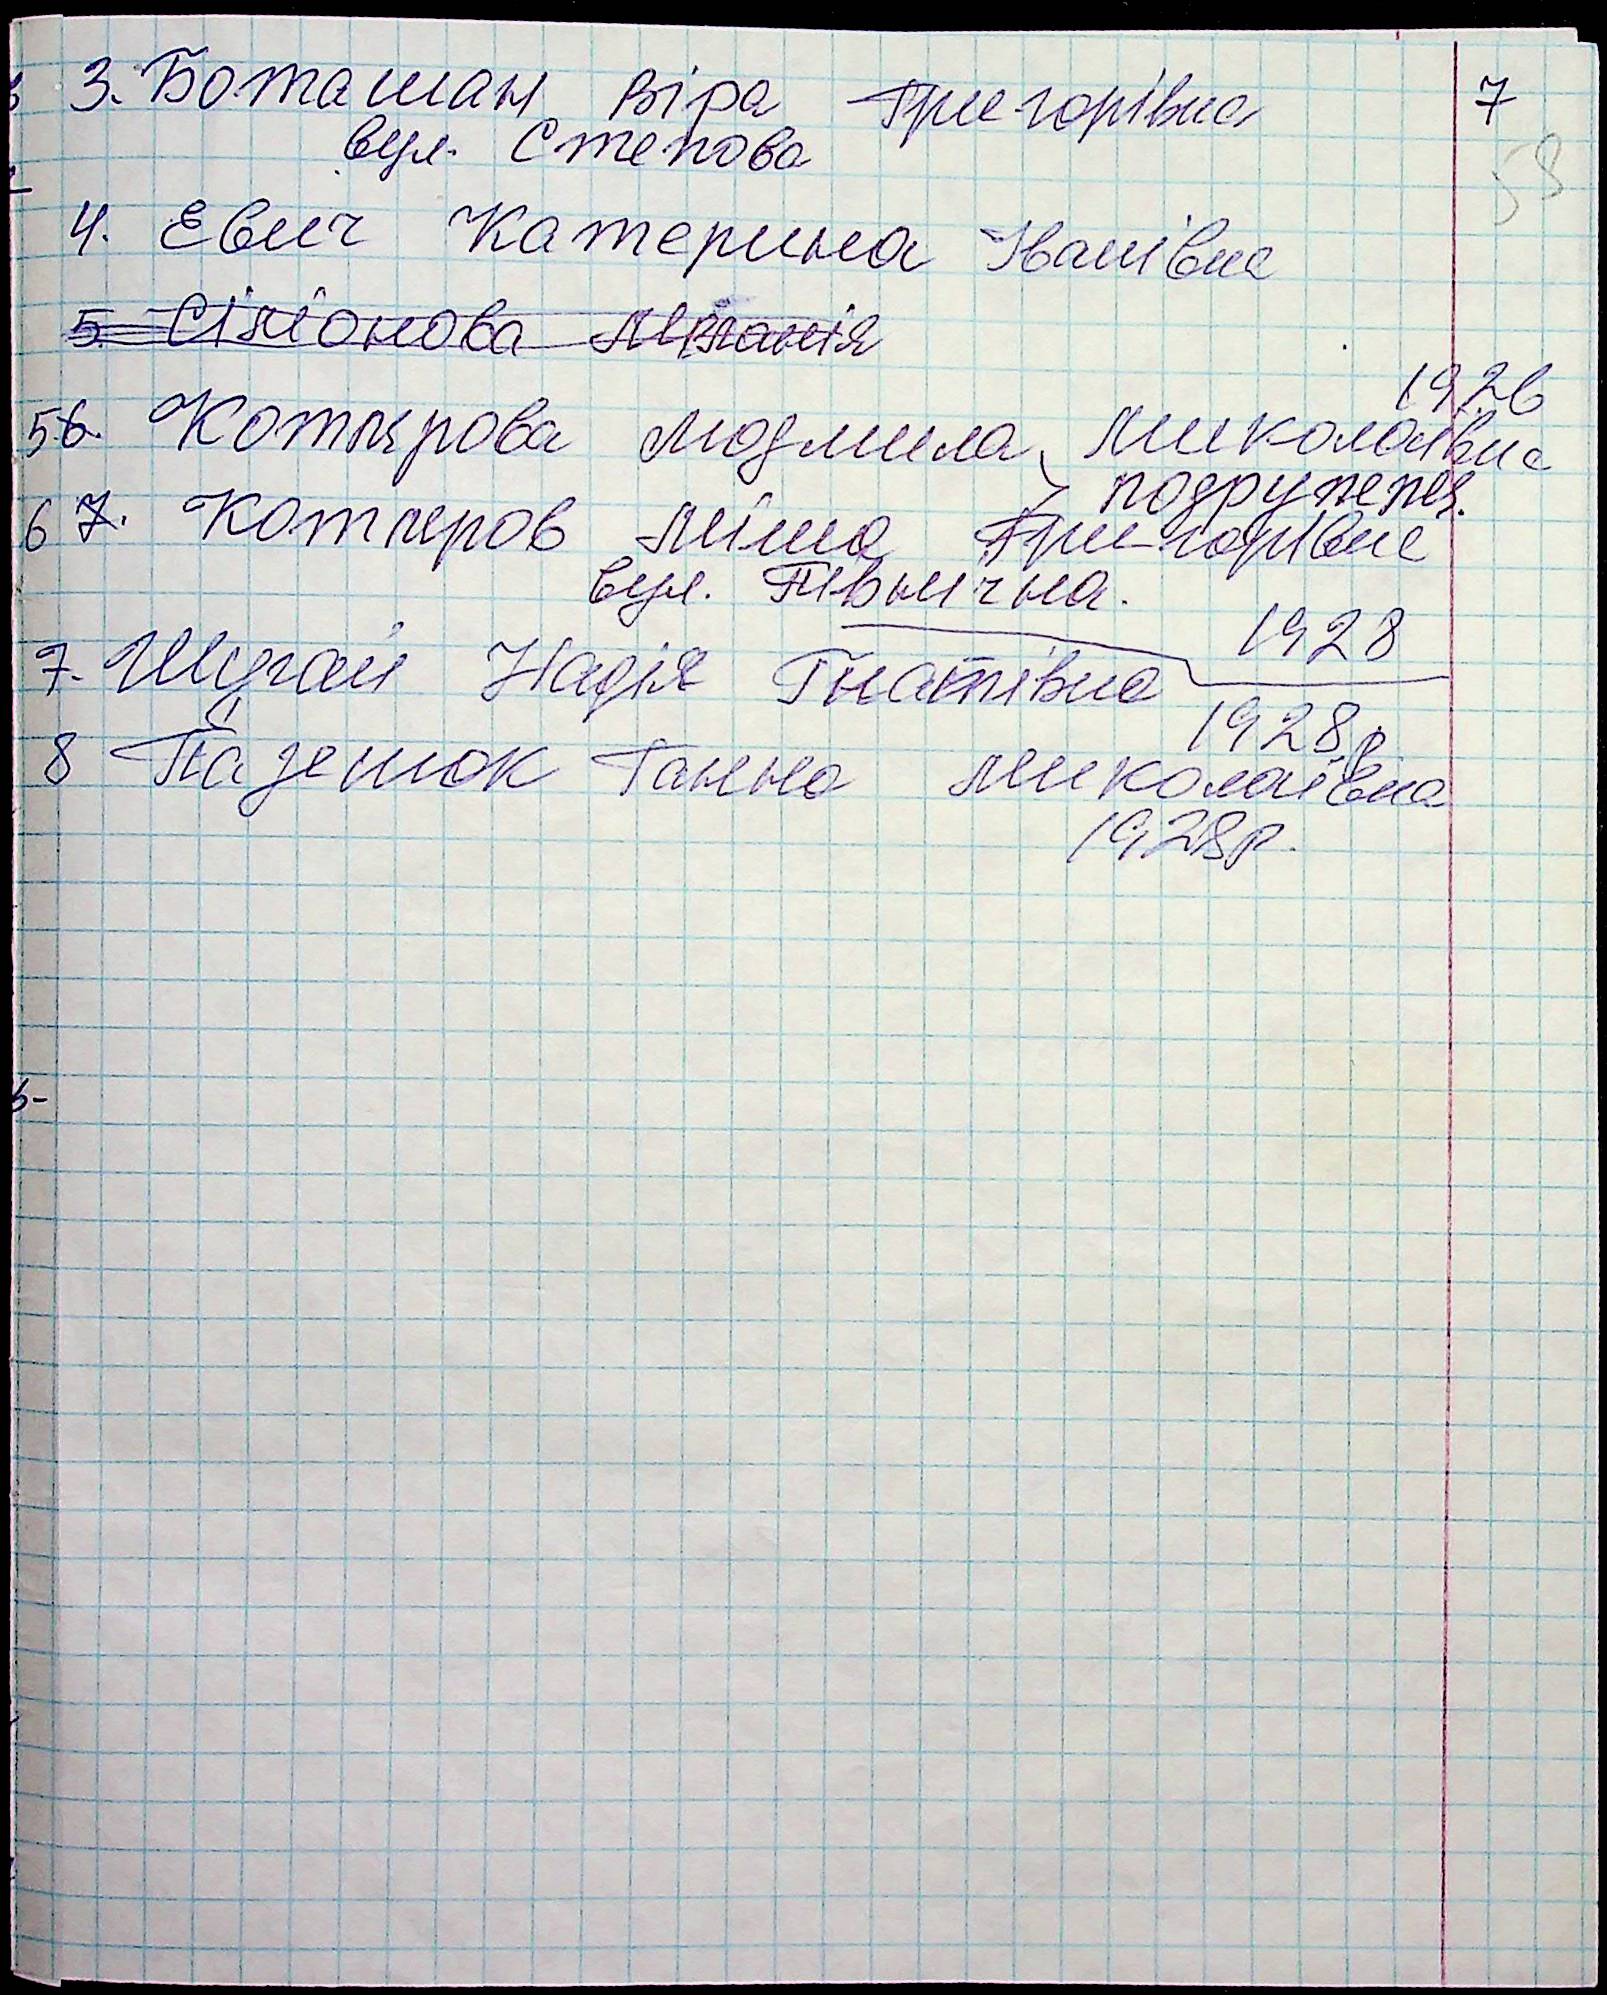 3. Боташан Віра Григорівна 7
вул. Степова 58
4. Евич Катерина Іванівна
5. Сімонова Меланія
1926
5 6. Котирова Людмила Миколаївна
подружжя.
6 7. Котиров Міша Григорівне
вул. Північна.
1928
7. Шугай Надія Гнатівна
1928р
8 Пазенюк Ганна Миколаївна
1928р.